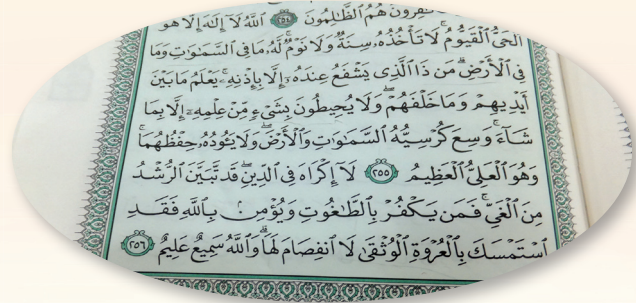 هُمُ ٱلظَّٰلِمُونَ ٢٥٤ ٱللَّهُ لَآ إِلَٰهَ إِلَّا هُوَ
ٱلْحَىُّ ٱلْقَيُّومُ ۚ لَا تَأْخُذُهُۥ سِنَةٌ وَلَا نَوْمٌ ۚ لَّهُۥ مَا فِى ٱلسَّمَٰوَٰتِ وَمَا
فِى ٱلْأَرْضِ ۗ مَن ذَا ٱلَّذِى يَشْفَعُ عِندَهُۥٓ إِلَّا بِإِذْنِهِۦ ۚ يَعْلَمُ مَا بَيْنَ
أَيْدِيهِمْ وَمَا خَلْفَهُمْ ۖ وَلَا يُحِيطُونَ بِشَىْءٍ مِّنْ عِلْمِهِۦٓ إِلَّا بِمَا
شَآءَ ۚ وَسِعَ كُرْسِيُّهُ ٱلسَّمَٰوَٰتِ وَٱلْأَرْضَ ۖ وَلَا يَـُٔودُهُۥ حِفْظُهُمَا ۚ
وَهُوَ ٱلْعَلِىُّ ٱلْعَظِيمُ ٢٥٥ لَآ إِكْرَاهَ فِى ٱلدِّينِ ۖ قَد تَّبَيَّنَ ٱلرُّشْدُ
مِنَ ٱلْغَىِّ ۚ فَمَن يَكْفُرْ بِٱلطَّٰغُوتِ وَيُؤْمِنۢ بِٱللَّهِ فَقَدِ
ٱسْتَمْسَكَ بِٱلْعُرْوَةِ ٱلْوُثْقَىٰ لَا ٱنفِصَامَ لَهَا ۗ وَٱللَّهُ سَمِيعٌ عَلِيمٌ ٢٥٦